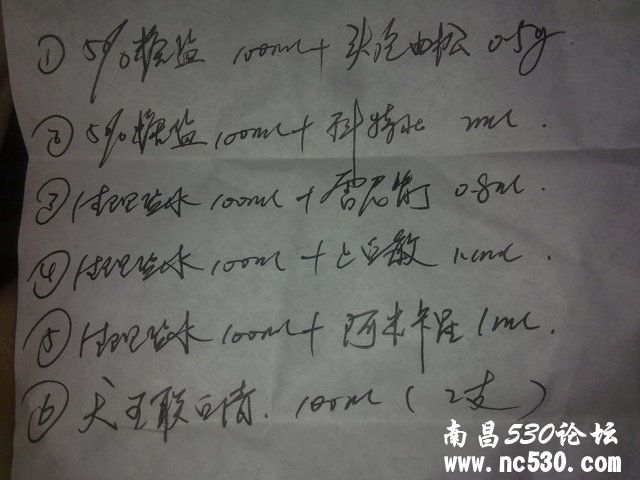 ① 5%糖盐 100ml + 头孢曲松 0.5g
② 5%糖盐 100ml + 科特壮 2ml.
③ 生理盐水 100ml + 雷尼替丁 0.8ml.
④ 生理盐水 100ml + 止血敏 ml.
⑤ 生理盐水 100ml + 阿米卡星 1ml.
⑥ 犬五联血清. 100ml (2支)
南昌530论坛
www.nc530.com